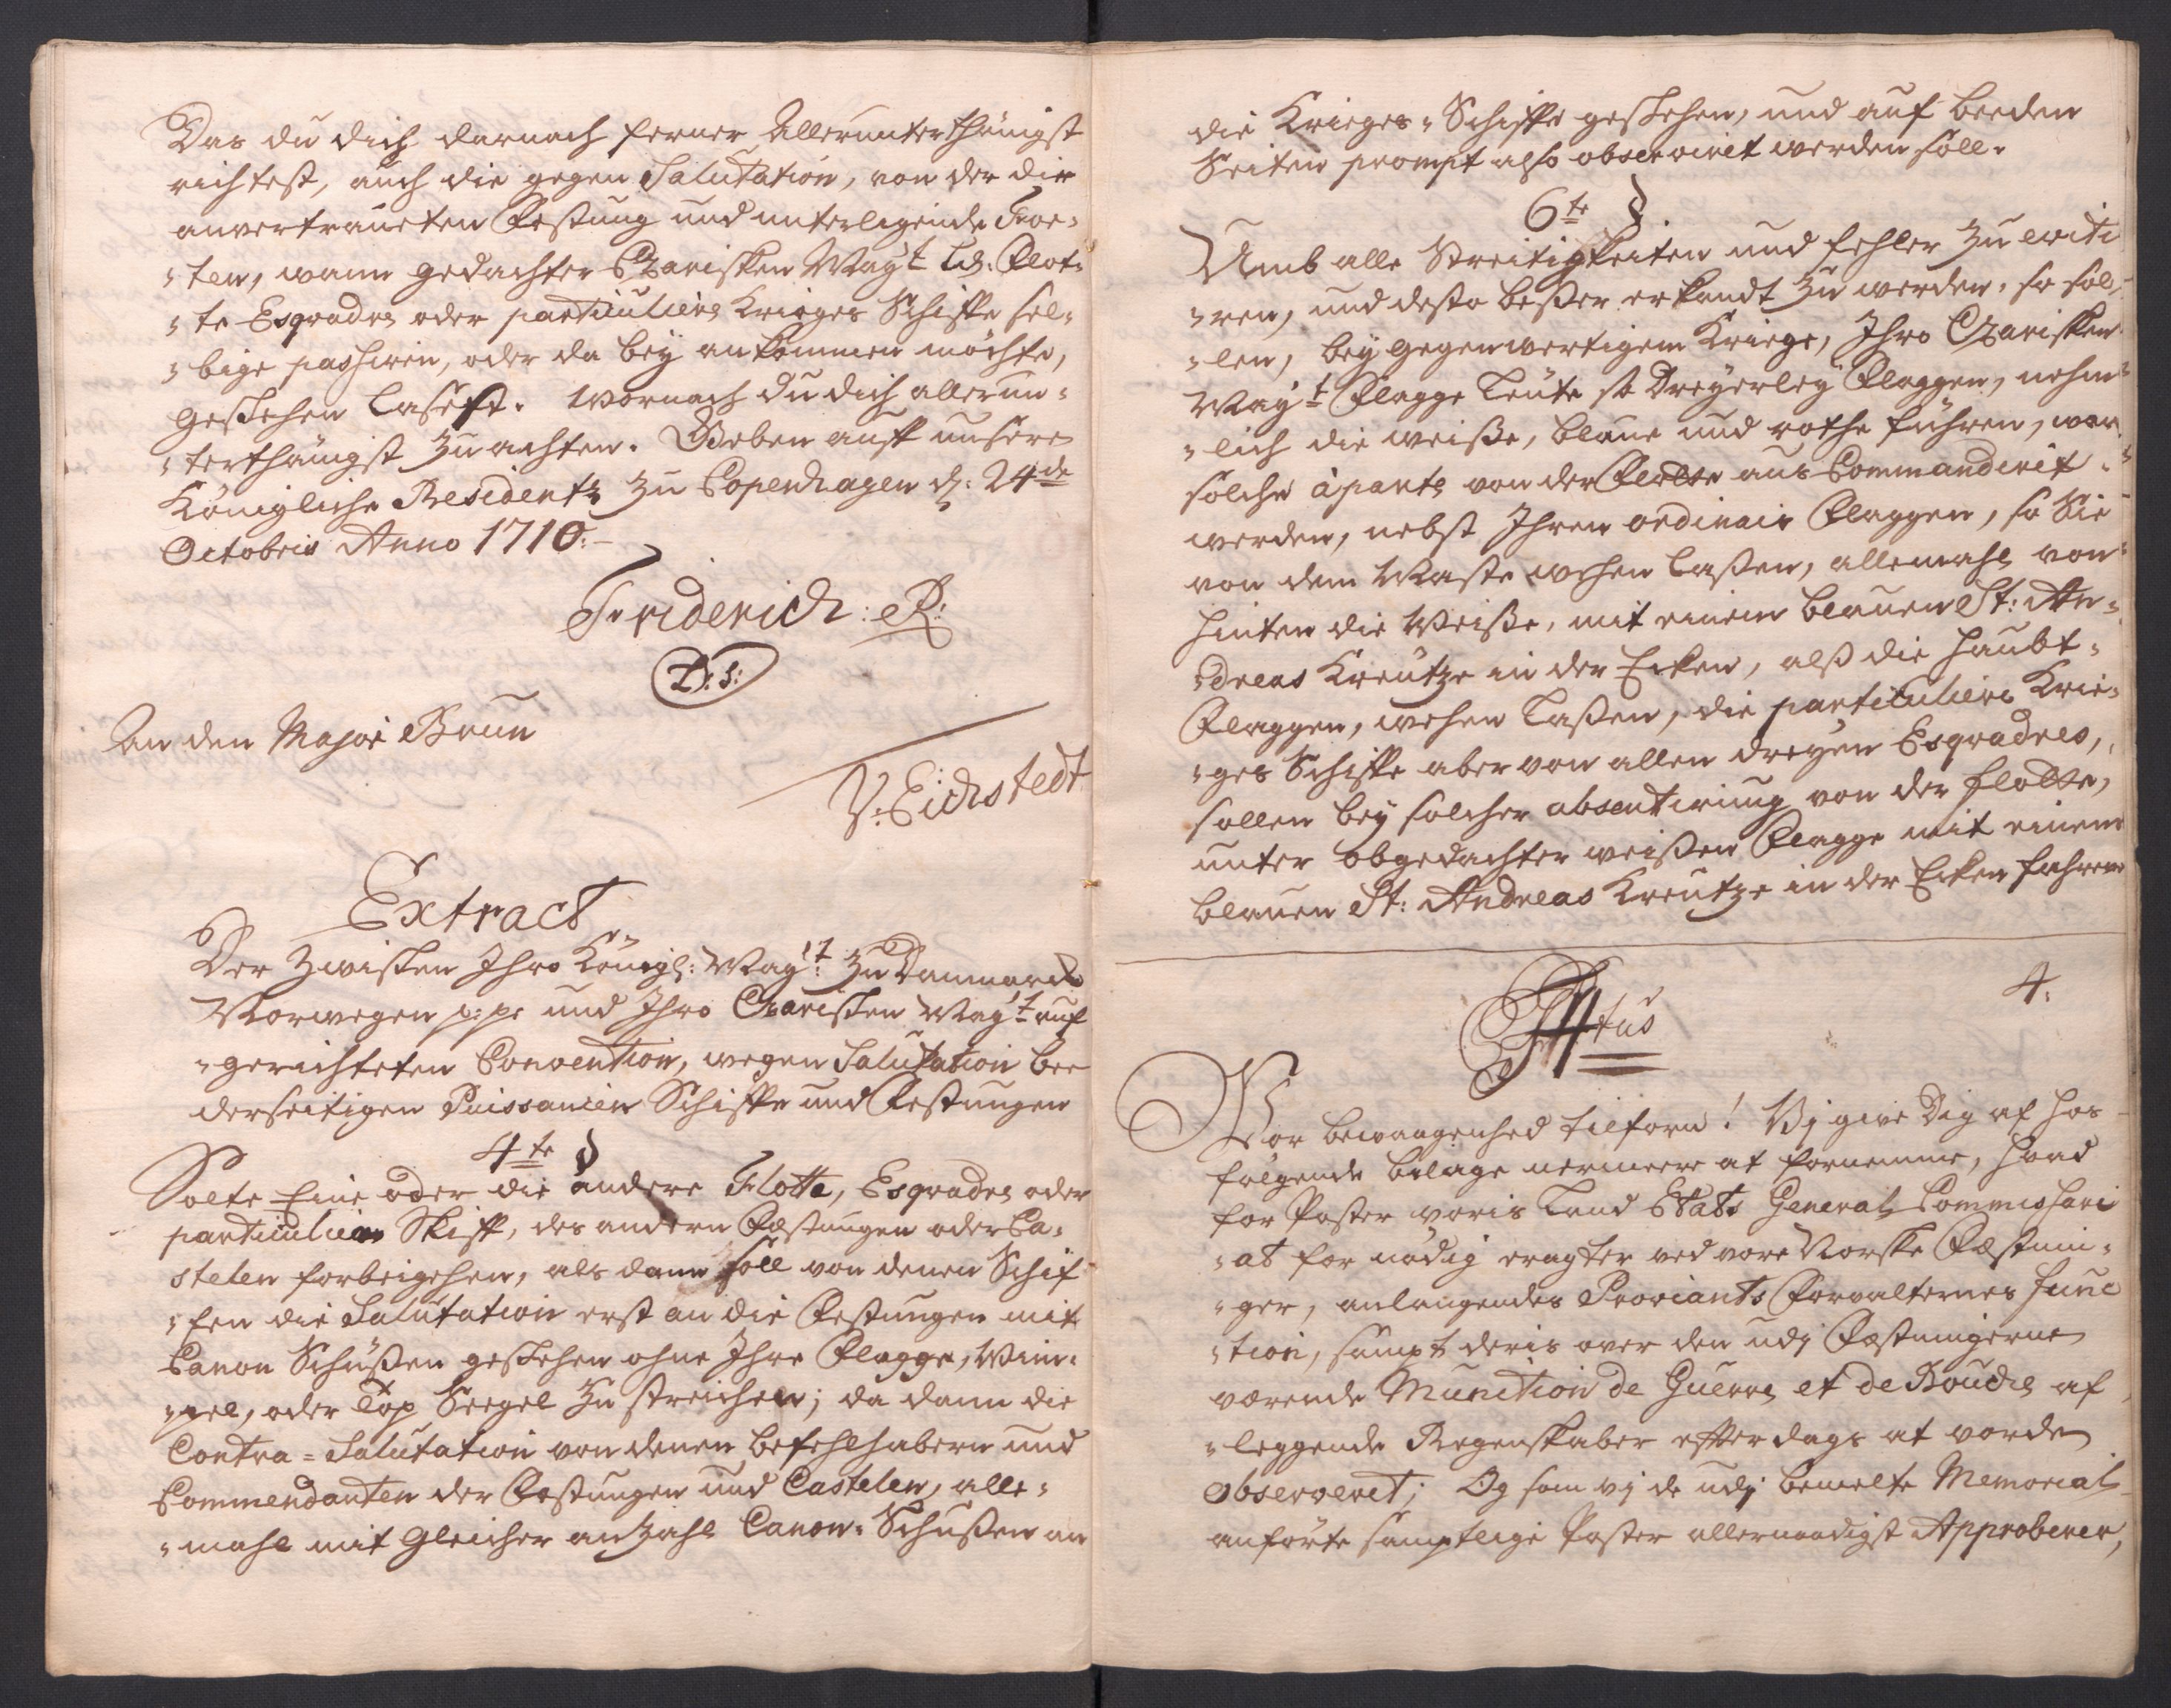 Das du dich darnach ferner Allerunterthänigst
richtest, auch die gegen Salutation, von der dir
anvertraueten Festung und unterligende For-
-ten, wann gedachter Czarischen Mayt Flot-
-te Esqvadre oder particuliere Krieges Schiffe sel-
-bige passiren, oder da bey ankommen möchte,
geschehen lasest. Wornach du dich allerun-
-terthänigst zu achten. Geben auff unsere
Königliche Residentz zu Copenhagen d: 24de
Octobris Anno 1710.
Friderich: R:
L: S:
An den Major Brun
V: Eichstedt
Extract
Der zwischen Ihro Königl: Mayt: zu Dennemarck
Norwegen p: p: und Ihro Czarischen Mayt auf
-gerichteten Convention, wegen Salutation bee
derseitigen Puissancen Schiffe und Festungen
4te §
Solte Eine oder die andere Flotte, Esqvadre oder
particulier Skiff, des andern Festungen oder Ca-
stelen forbeigehen, als dann soll von denen Schif
-fen die Salutation erst an die Festungen mit
Canon Schüßen geschehen ohne Ihre Flagge, Wim-
-pel, oder Top Seegel zu streichen; da dann die
Contra-Salutation von denen befehlhabern und
Commendanten der Festungen und Castelen, alle-
-mahl mit gleicher anzahl Canon-Schußen an
die Krieges-Schiffe geschehen, und auf beeden
Seiten prompt also observiret werden soll.
6te §
Umb alle Streitigkeiten und fehler zu eviti
-ren, und desto beßer erkandt zu werden, so sol-
-len, bey gegenwertigem Kriege, Ihro Czarischen
Mayt Flagge Leute so dreyerley Flaggen, nehm-
-lich die weiße, blaue und rothe führen, wan
solche àparte von der Flotte aus Commandirt
werden, nebst Ihren ordinair Flaggen, so Sie
von dem Maste wehen laßen, allemahl von
hinten die Weiße, mit einem blauen St: An-
-dreas Kreutze in der Ecken, alß die haubt-
Flaggen, wehen laßen, die particuliere Krie-
-ges Schiffe aber von allen dreyen Esqvadres,
sollen bey solcher absentirung von der flotte,
unter obgedachter weißen Flagge mit einem
blauen St: Andreas Kreutze in der Ecken fahren
4.
Vor bewaagenhed tilforn! Vj give Dig af hos
følgende bilage nermeere at fornemme, hvad
for Poster voris Land Etats General Commissari
-at for nödig eragter ved vore Norske Fæstnin-
-ger, anlangendes Proviants Forvalternes func
-tion, sampt deris over den udj Fæstningerne
værende Munition de Guerre et de Bouche af
-leggende Regenskaber effterdags at vorde
observeret; Og som vj de udj bemelte Memorial
anförte samptlige Poster allernaadigst Approberer,